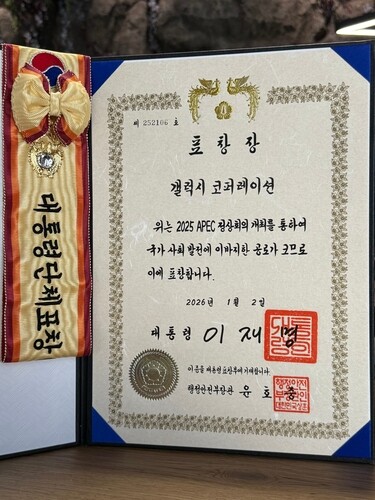 대통령단체표창
제 252166 호
표 창 장
갤럭시 코퍼레이션
위는 2025 APEC 정상회의 개최를 통하여
국가 사회 발전에 이바지한 공로가 크므로
이에 표창합니다.
2026년 1월 2일
대통령 이 재 명
이 증을 대통령표창부에 기재합니다.
행정안전부장관 윤 호 중